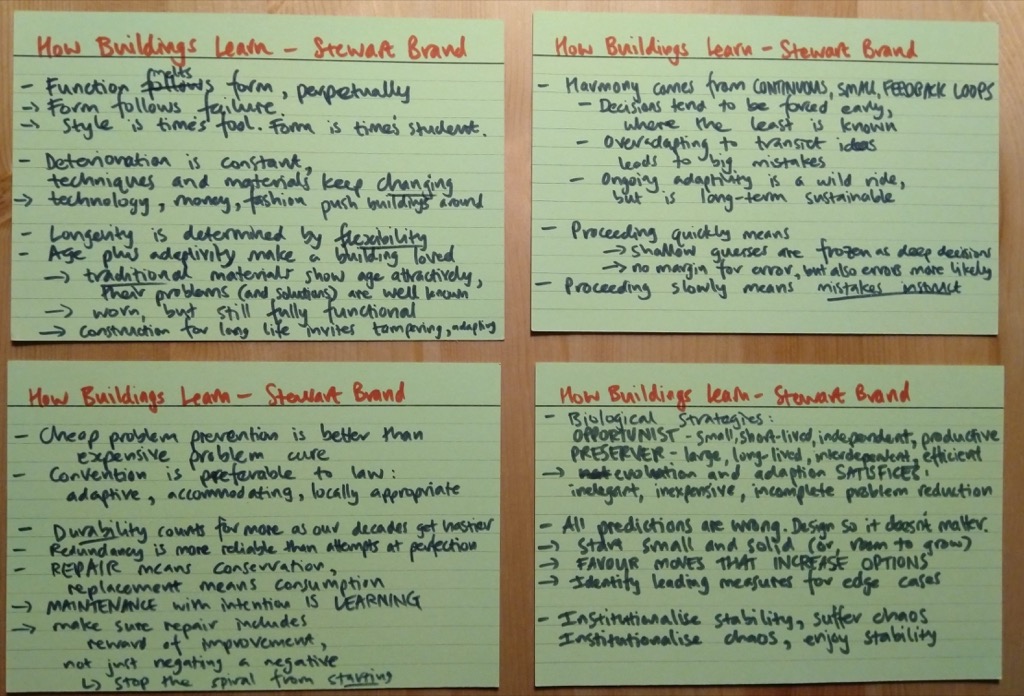 How Buildings Learn - Stewart Brand
- Function melts form, perpetually
-> Form follows failure.
-> Style is time's fool. Form is time's student.
- Deterioration is constant,
techniques and materials keep changing
-> technology, money, fashion push buildings around
- Longevity is determined by flexibility
- Age plus adaptivity make a building loved
-> traditional materials show age attractively,
their problems (and solutions) are well known
-> worn, but still fully functional
-> construction for long life invites tampering, adapting
How Buildings Learn - Stewart Brand
- Harmony comes from CONTINUOUS, SMALL, FEEDBACK LOOPS
- Decisions tend to be forced early,
where the least is known
- Overadapting to transient ideas
leads to big mistakes
- Ongoing adaptivity is a wild ride,
but is long-term sustainable
- Proceeding quickly means
-> shallow guesses are frozen as deep decisions
-> no margin for error, but also errors more likely
- Proceeding slowly means mistakes instruct
How Buildings Learn - Stewart Brand
- Cheap problem prevention is better than
expensive problem cure
- Convention is preferable to law:
adaptive, accommodating, locally appropriate
- Durability counts for more as our decades get hastier
- Redundancy is more reliable than attempts at perfection
- REPAIR means conservation,
replacement means consumption
-> MAINTENANCE with intention IS LEARNING
-> make sure repair includes
reward of improvement,
not just negating a negative
↳ stop the spiral from starting
How Buildings Learn - Stewart Brand
- Biological Strategies:
OPPORTUNIST - small, short-lived, independent, productive
PRESERVER - large, long-lived, interdependent, efficient
-> evolution and adaption SATISFICES:
inelegant, inexpensive, incomplete problem reduction
- All predictions are wrong. Design so it doesn't matter.
-> Start small and solid (or, room to grow)
-> FAVOUR MOVES THAT INCREASE OPTIONS
-> Identify leading measures for edge cases
- Institutionalise stability, suffer chaos
Institutionalise chaos, enjoy stability